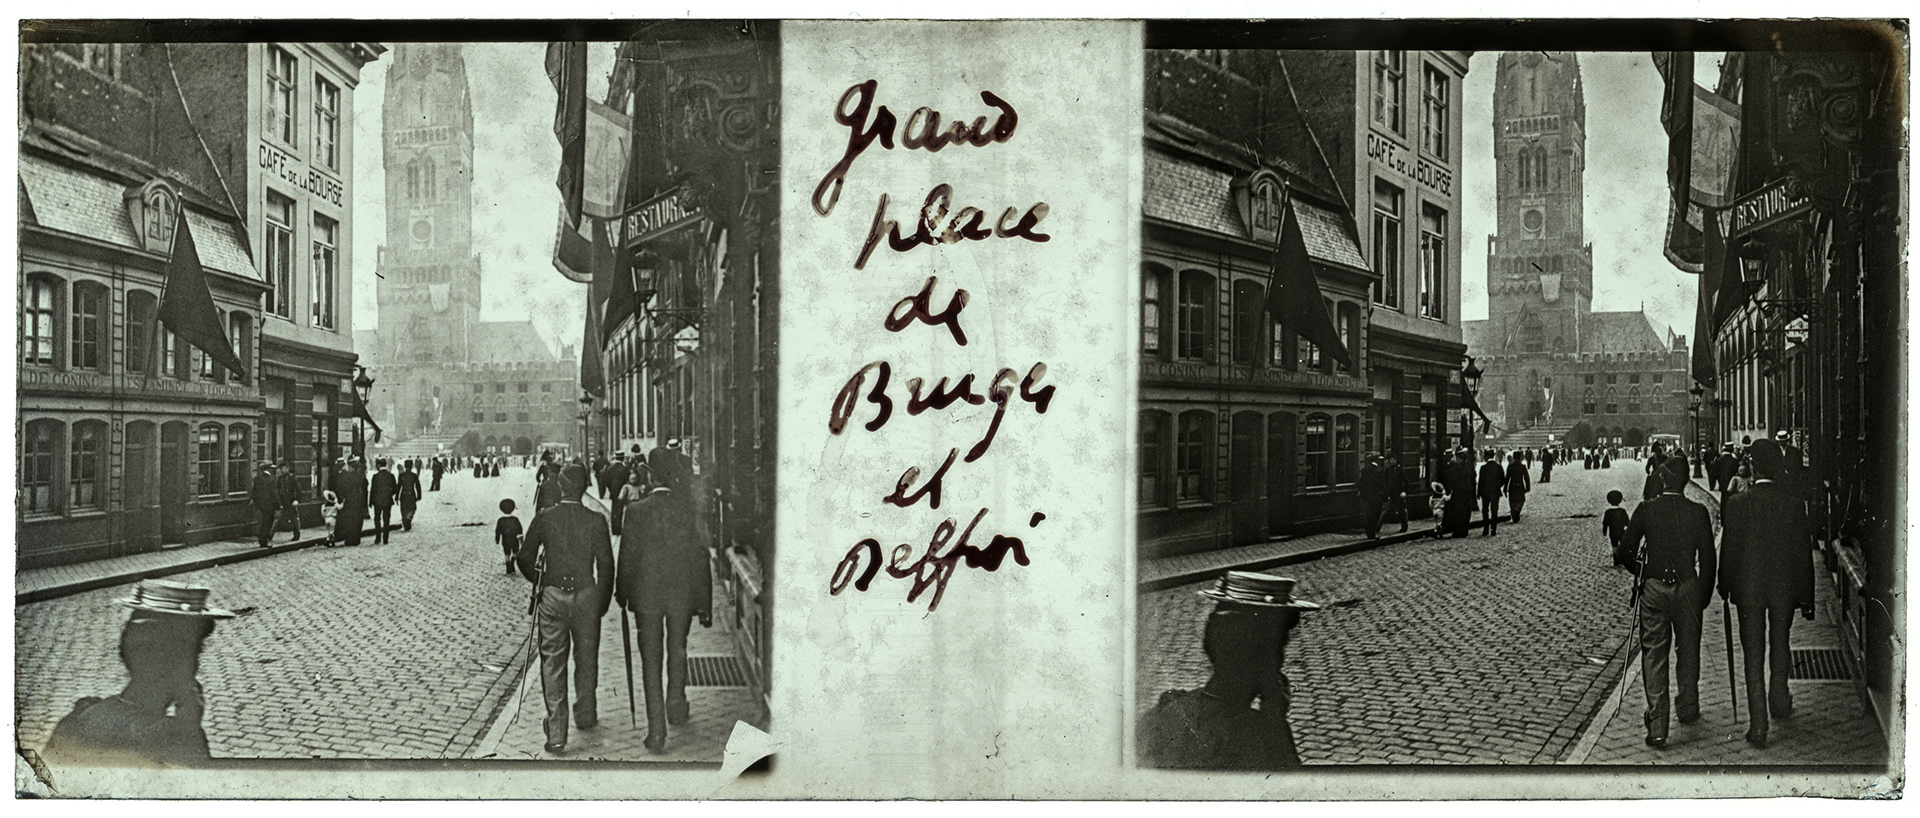 CAFÉ DE LA BOURSE
RESTAURA
DE CONINC ESTAMINET EN LOGEMENT
Grand
place
de
Bruges
et
Beffroi
CAFÉ DE LA BOURSE
RESTAURA
DE CONINC ESTAMINET EN LOGEMENT